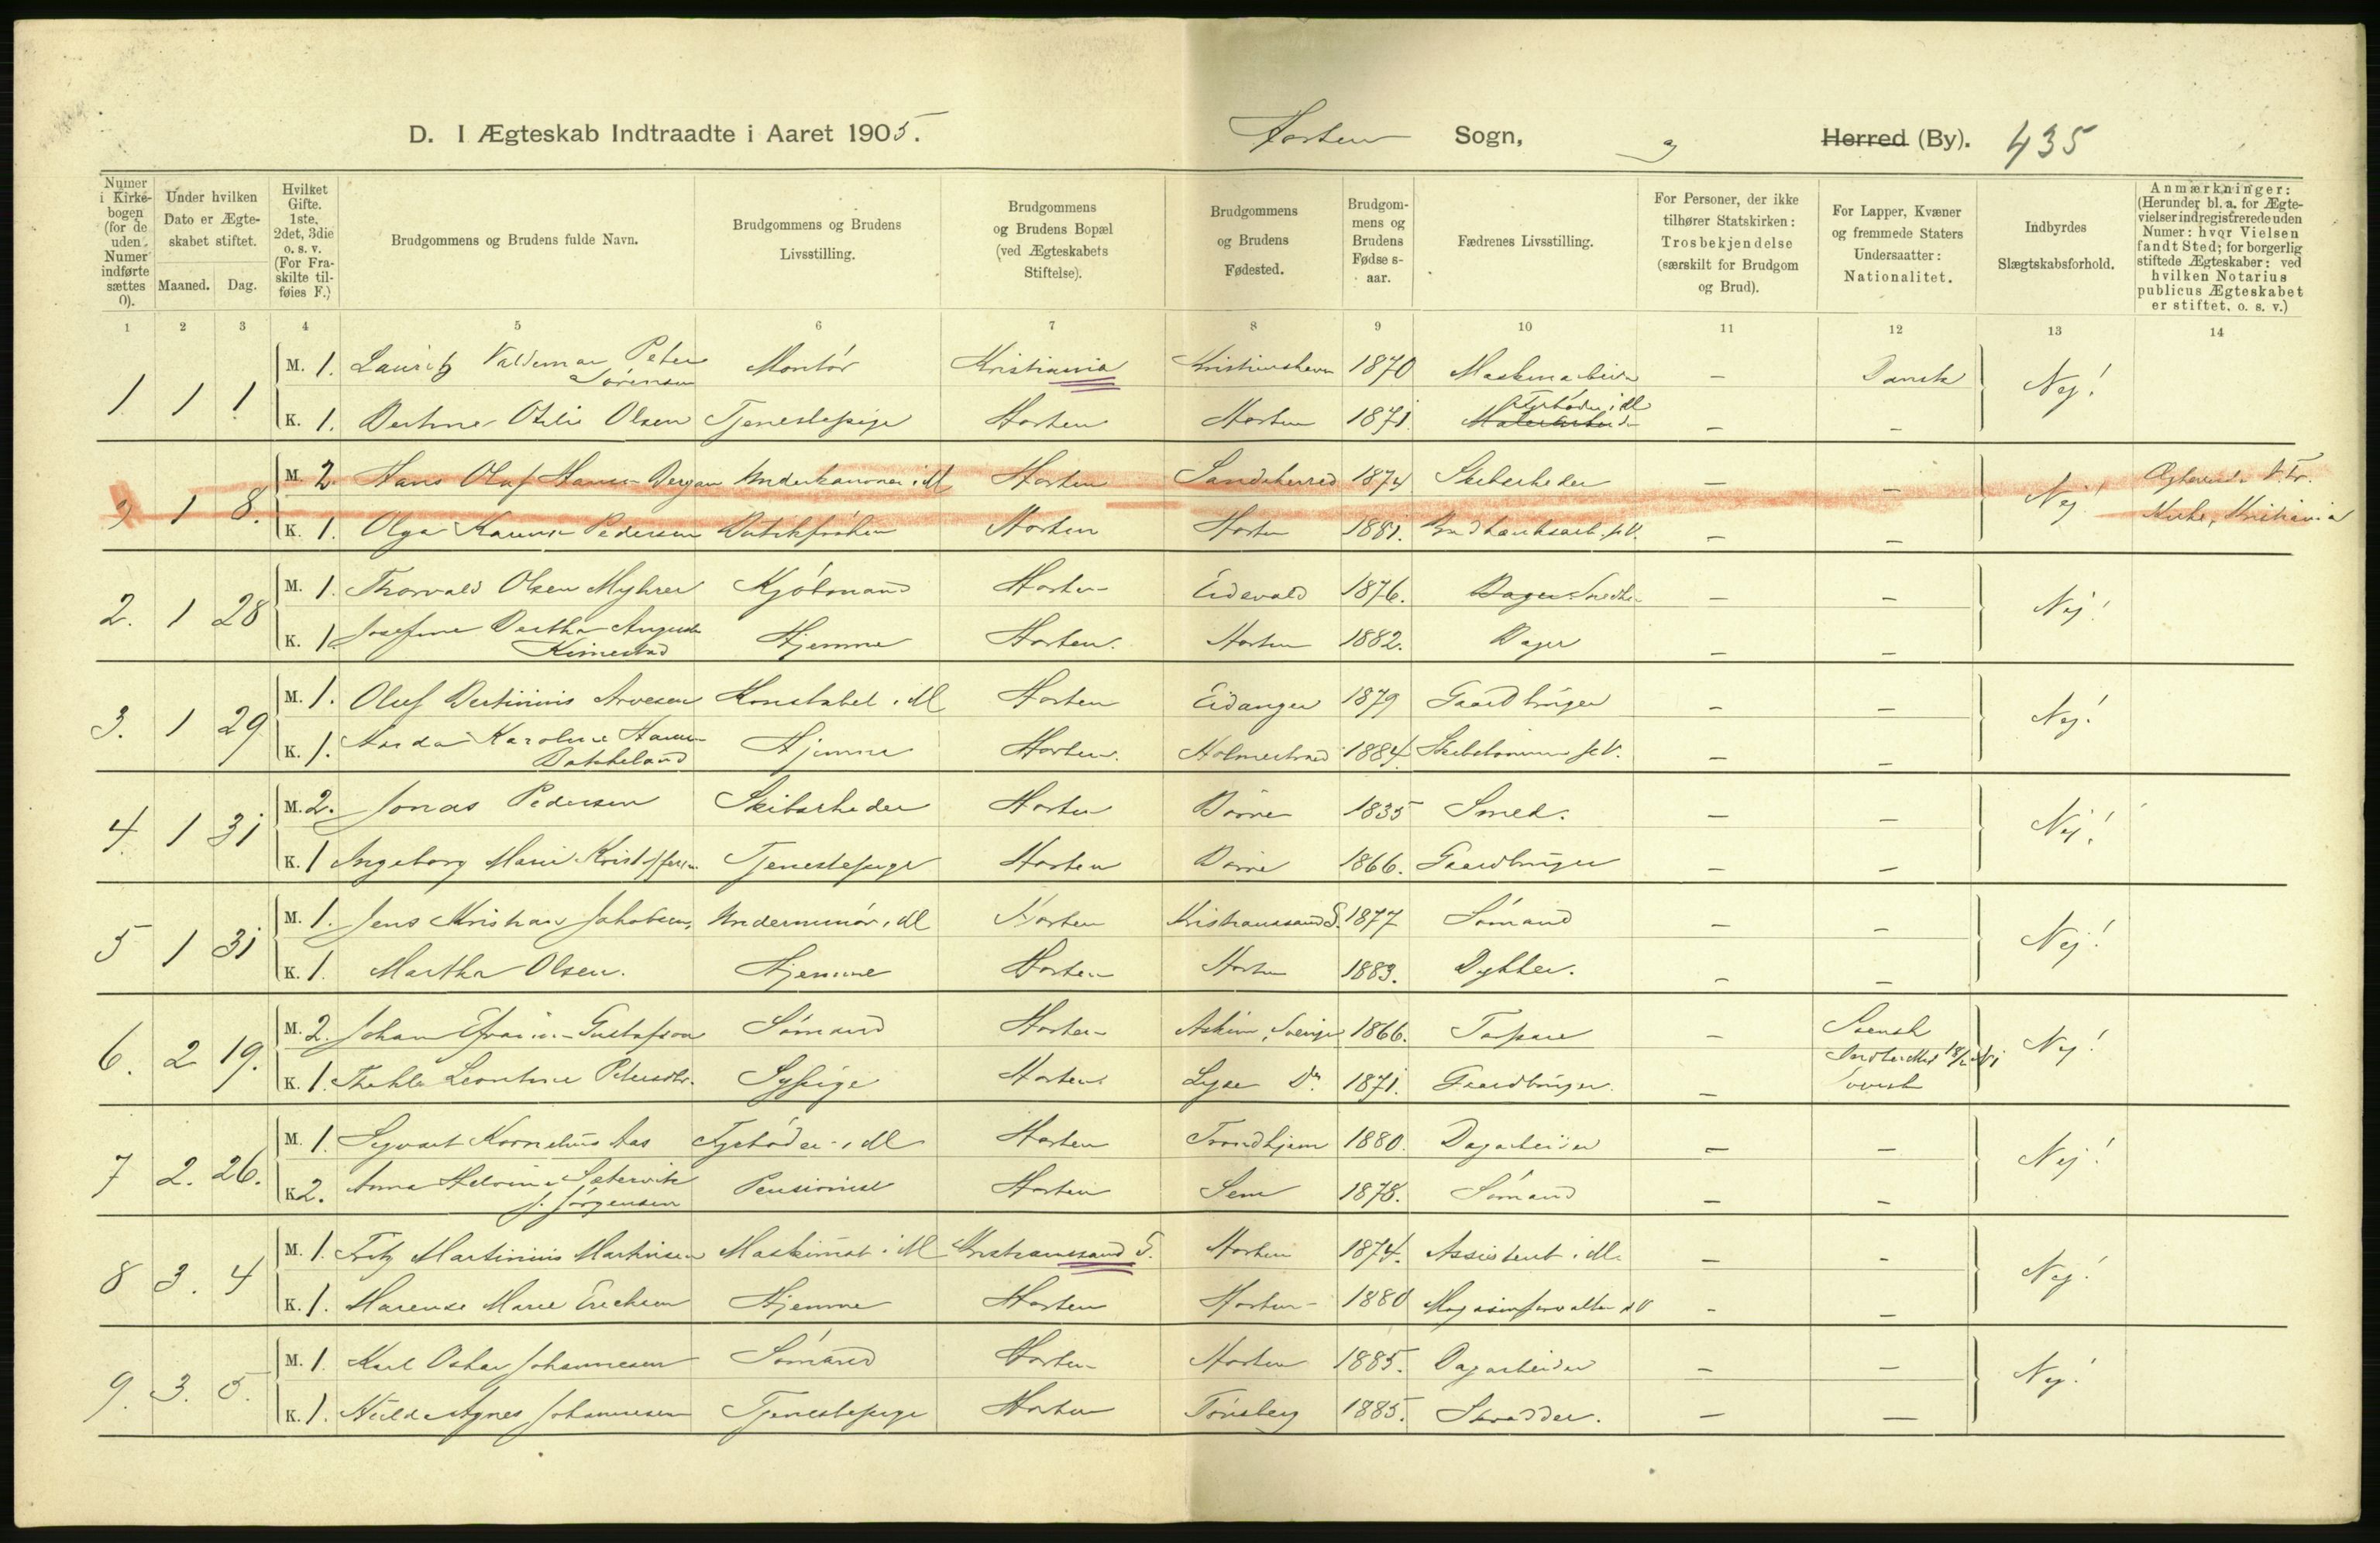 D. I Ægteskab Indtraadte i Aaret 1905. Horten Sogn, Herred (By). 435
Numer i Kirkebogen (for de uden Numer indførte sættes 0).
Under hvilken Dato er Ægteskabet stiftet.
Maaned. Dag.
Hvilket Gifte. 1ste, 2det, 3die o. s. v. (For Fraskilte tilføies F.)
Brudgommens og Brudens fulde Navn.
Brudgommens og Brudens Livsstilling.
Brudgommens og Brudens Bopæl (ved Ægteskabets Stiftelse).
Brudgommens og Brudens Fødested.
Brudgommens og Brudens Fødselsaar.
Fædrenes Livsstilling.
For Personer, der ikke tilhører Statskirken: Trosbekjendelse (særskilt for Brudgom og Brud).
For Lapper, Kvæner og fremmede Staters Undersaatter: Nationalitet.
Indbyrdes Slægtskabsforhold.
Anmærkninger: (Herunder bl. a. for Ægtevielser indregistrerede uden Numer: hvor Vielsen fandt Sted; for borgerlig stiftede Ægteskaber: ved hvilken Notarius publicus Ægteskabet er stiftet, o. s. v.)
1 2 3 4 5 6 7 8 9 10 11 12 13 14
1. 1 1 M. 1. Lauritz Valdemar Peter Sörensen Montör Kristiania Kristianshavn 1870 Maskinarbeider — Dansk Nej!
K. 1. Olsen Tjenestepige Horten Horten 1871. — —
1 8. M. 2 Hans Olaf Hansen Bergan Underkanoner i M Horten Sandeherred 1874 — — Nej!
K. 1. Olga Pedersen Horten Horten 1881. — — Kirke, Kristiania
2. 1 28 M. 1. Thorvald Olsen Myhrer Kjöbmand Horten Eidsvold 1876. — — Nej!
K. 1. Josefine Bertha Augusta Kimestad Hjemme Horten. Horten 1882. Bager — —
3. 1 29 M. 1. Oluf Bertinius Arvesen Konstabel i M Horten Eidanger 1879 Gaardbruger — — Nej!
K. 1. Karoline Hansen Bakkeland Hjemme Horten. Holmestrand 1884. — —
4. 1 31 M. 2. Jonas Pedersen Skibarbeider Horten Borre 1835 Smed. — — Nej!
K. 1 Ingeborg Marie Kristoffersen Tjenestepige Horten Borre 1866. Gaardbruger — —
5 1 31 M. 1. Jens Kristian Jakobsen, Underminör i M Horten Kristianssand S. 1877 Sömand — — Nej!
K. 1. Martha Olsen. Hjemme Horten Horten 1883. Dykker. — —
6. 2 19. M. 2. Johan Efraim Gustafson Sömand Horten Askim, Sverige 1866. — Svensk Nej!
K. 1. Thekla Leontine Petersdtr. Sypige Horten Lyse Do 1871. Gaardbruger. — Svensk
7 2. 26. M. 1. Sigvart Kornelius Aas Fyrböder i M Horten Trondhjem 1880. Dagarbeider — — Nej!
K. 2. Anna f. Jörgensen Pensionist Horten Sem 1878. Sömand — —
8 3. 4 M. 1. Fritz Martinius Martinsen Maskinist i M Kristianssand S. Horten 1874. Assistent i M. — — Nej!
K. 1. Marie Erichsen Hjemme Horten Horten 1880 Magasinforvalter — —
9. 3. 5. M. 1. Karl Oskar Johannesen Sömand Horten Horten 1885. Dagarbeider — — Nej!
K. 1. Hulda Agnes Johannesen Tjenestepige Horten Tönsberg 1885. Skrædder. — —